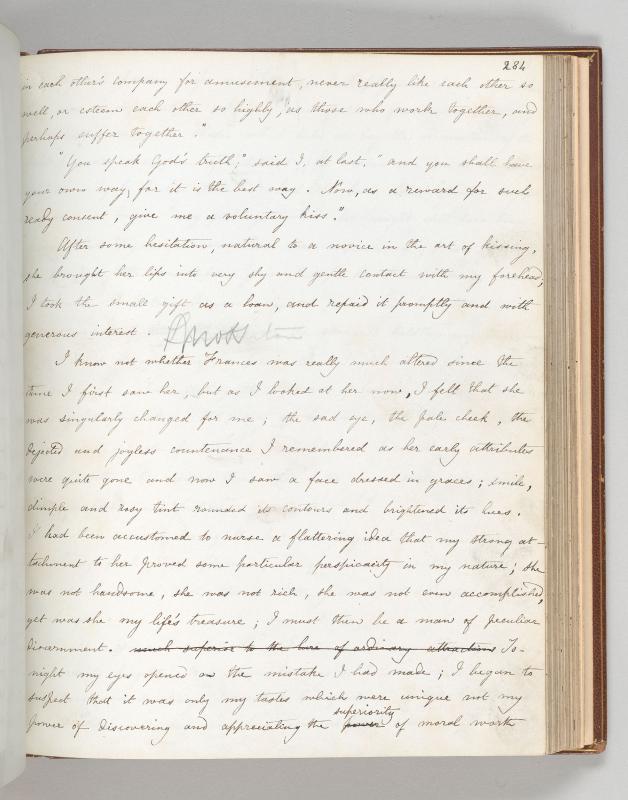 284
in each other's company for amusement, never really like each other so
well, or esteem each other so highly, as those who work together, and
perhaps suffer together."
"You speak God's truth," said I, at last, "and you shall have
your own way, for it is the best way. Now, as a reward for such
ready consent, give me a voluntary kiss."
After some hesitation, natural to a novice in the art of kissing,
she brought her lips into very shy and gentle contact with my forehead;
I took the small gift as a loan, and repaid it promptly and with
generous interest.
I know not whether Frances was really much altered since the
time I first saw her, but as I looked at her now, I felt that she
was singularly changed for me; the sad eye, the pale cheek, the
dejected and joyless countenance I remembered as her early attributes
were quite gone and now I saw a face dressed in graces; smile,
dimple and rosy tint rounded its contours and brightened its hues.
I had been accustomed to nurse a flattering idea that my strong at-
tachment to her proved some particular perspicacity in my nature; she
was not handsome, she was not rich, she was not even accomplished,
yet was she my life's treasure; I must then be a man of peculiar
discernment. much superior to the lure of ordinary attractions To-
night my eyes opened on the mistake I had made; I began to
suspect that it was only my tastes which were unique not my
superiority
power of discovering and appreciating the power of moral worth